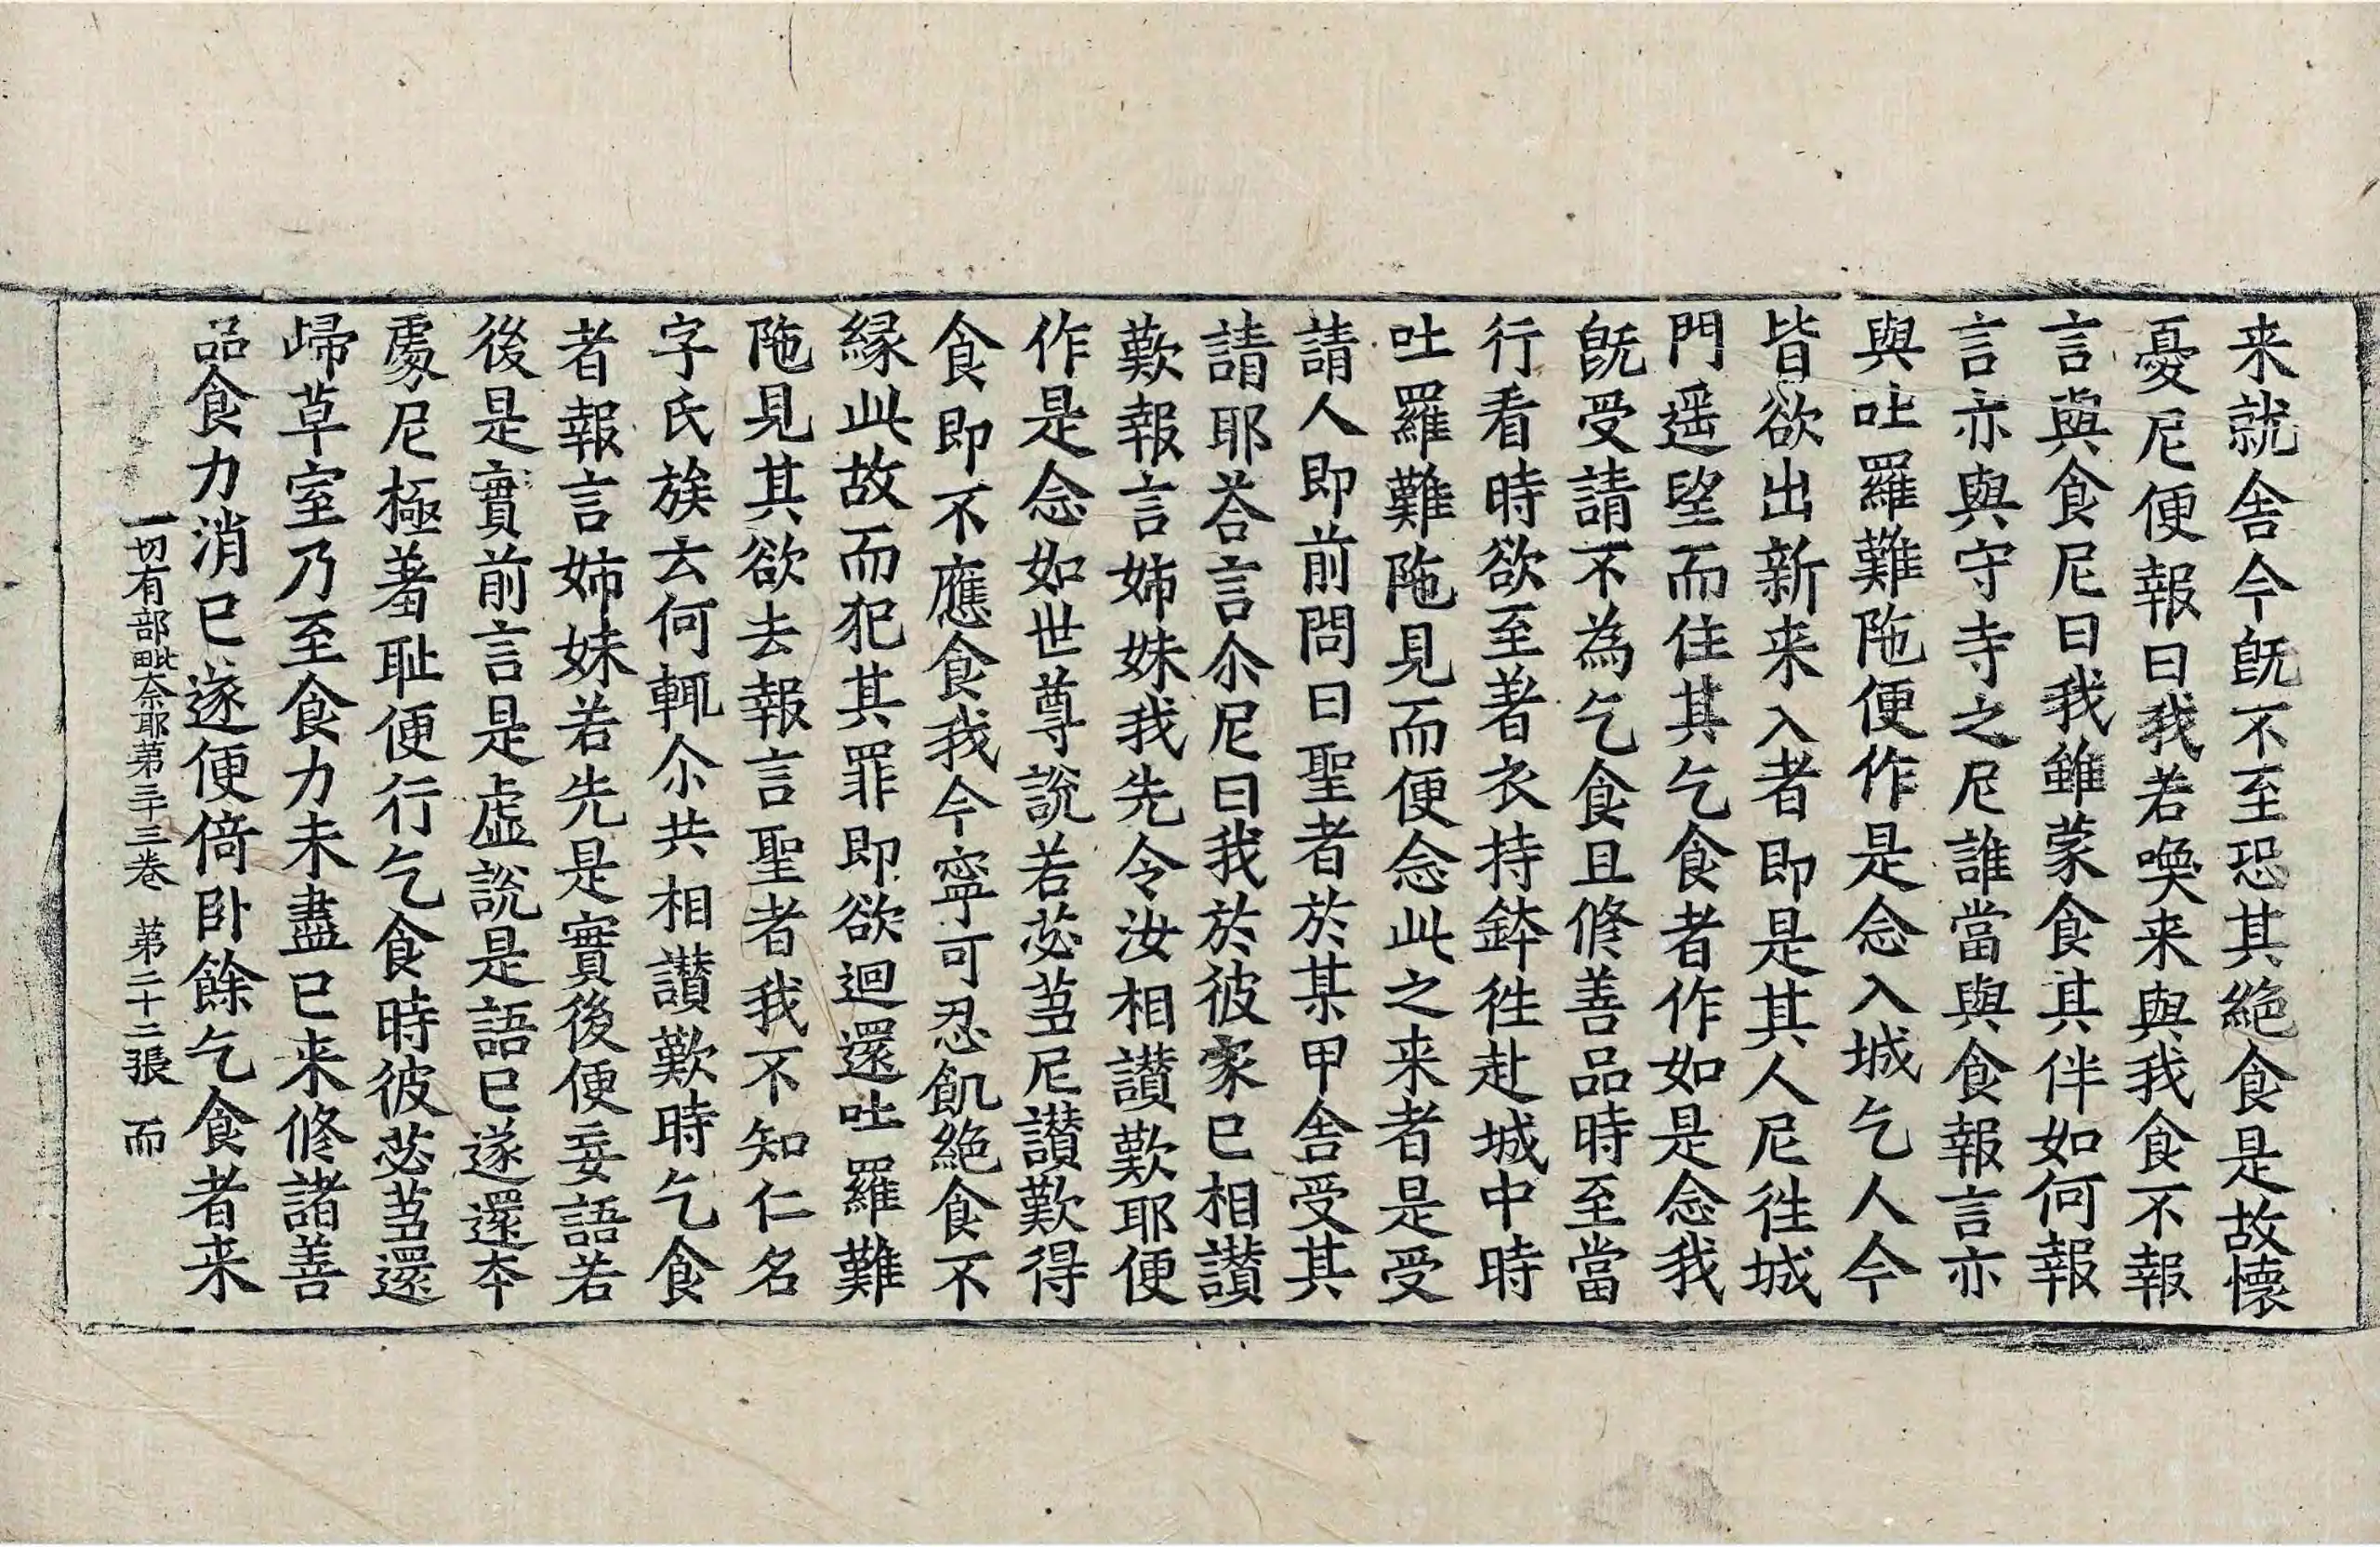 来就舍今旣不至恐其絶食是故懷
憂尼便報曰我若喚来與我食不報
言與食尼曰我雖蒙食其伴如何報
言亦與守寺之尼誰當與食報言亦
與吐羅難陁便作是念入城乞人今
皆欲出新来入者即是其人尼徃城
門遥望而住其乞食者作如是念我
旣受請不為乞食且修善品時至當
行看時欲至著衣持鉢徃赴城中時
吐羅難陁見而便念此之来者是受
請人即前問曰聖者於某甲舍受其
請耶荅言尒尼曰我於彼家已相讃
歎報言姊妹我先令汝相讃歎耶便
作是念如世尊說若苾蒭尼讃歎得
食即不應食我今寧可忍飢絶食不
縁此故而犯其罪即欲迴還吐羅難
陁見其欲去報言聖者我不知仁名
字氏族云何輒尒共相讃歎時乞食
者報言姉妹若先是實後便妄語若
後是實前言是虛說是語已遂還夲
處尼極著耻便行乞食時彼苾蒭還
歸草室乃至食力未盡已来修諸善
品食力消已遂便倚卧餘乞食者来
一切有部毗奈耶第三十三卷　第二十二張　而